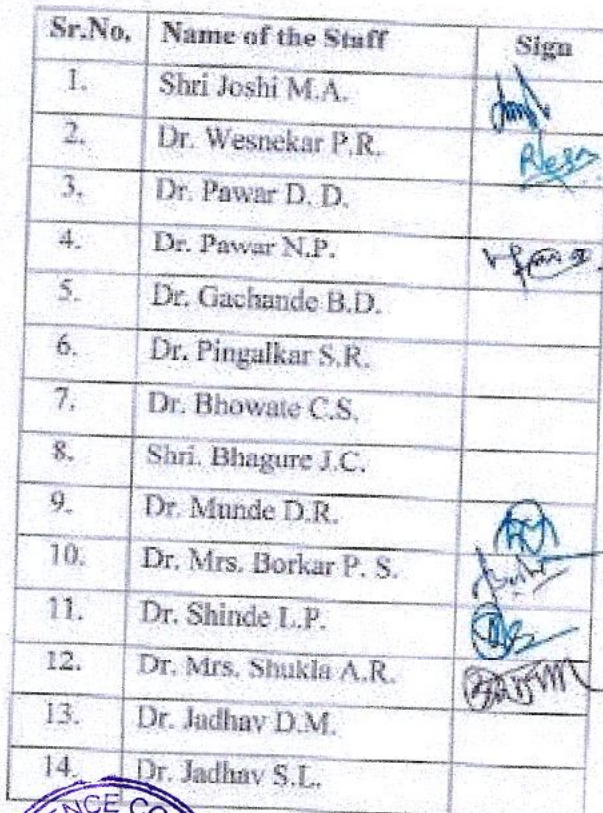 Sr.No. Name of the Staff Sign
1. Shri Joshi M.A.
2. Dr. Wesnekar P.R.
3. Dr. Pawar D. D.
4. Dr. Pawar N.P.
5. Dr. Gachande B.D.
6. Dr. Pingalkar S.R.
7. Dr. Bhowate C.S.
8. Shri. Bhagure J.C.
9. Dr. Munde D.R.
10. Dr. Mrs. Borkar P. S.
11. Dr. Shinde L.P.
12. Dr. Mrs. Shukla A.R.
13. Dr. Jadhav D.M.
14. Dr. Jadhav S.L.